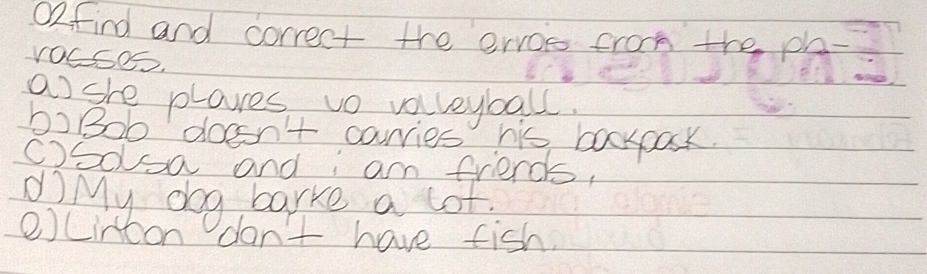 02 find and correct the errors from the ph-
rasses.
a) she playes vo volleyball.
b) Bob doesn't carries his backpack.
c) Salsa and i am friends,
d) My dog barke a lot.
e) Linton don't have fish.
English